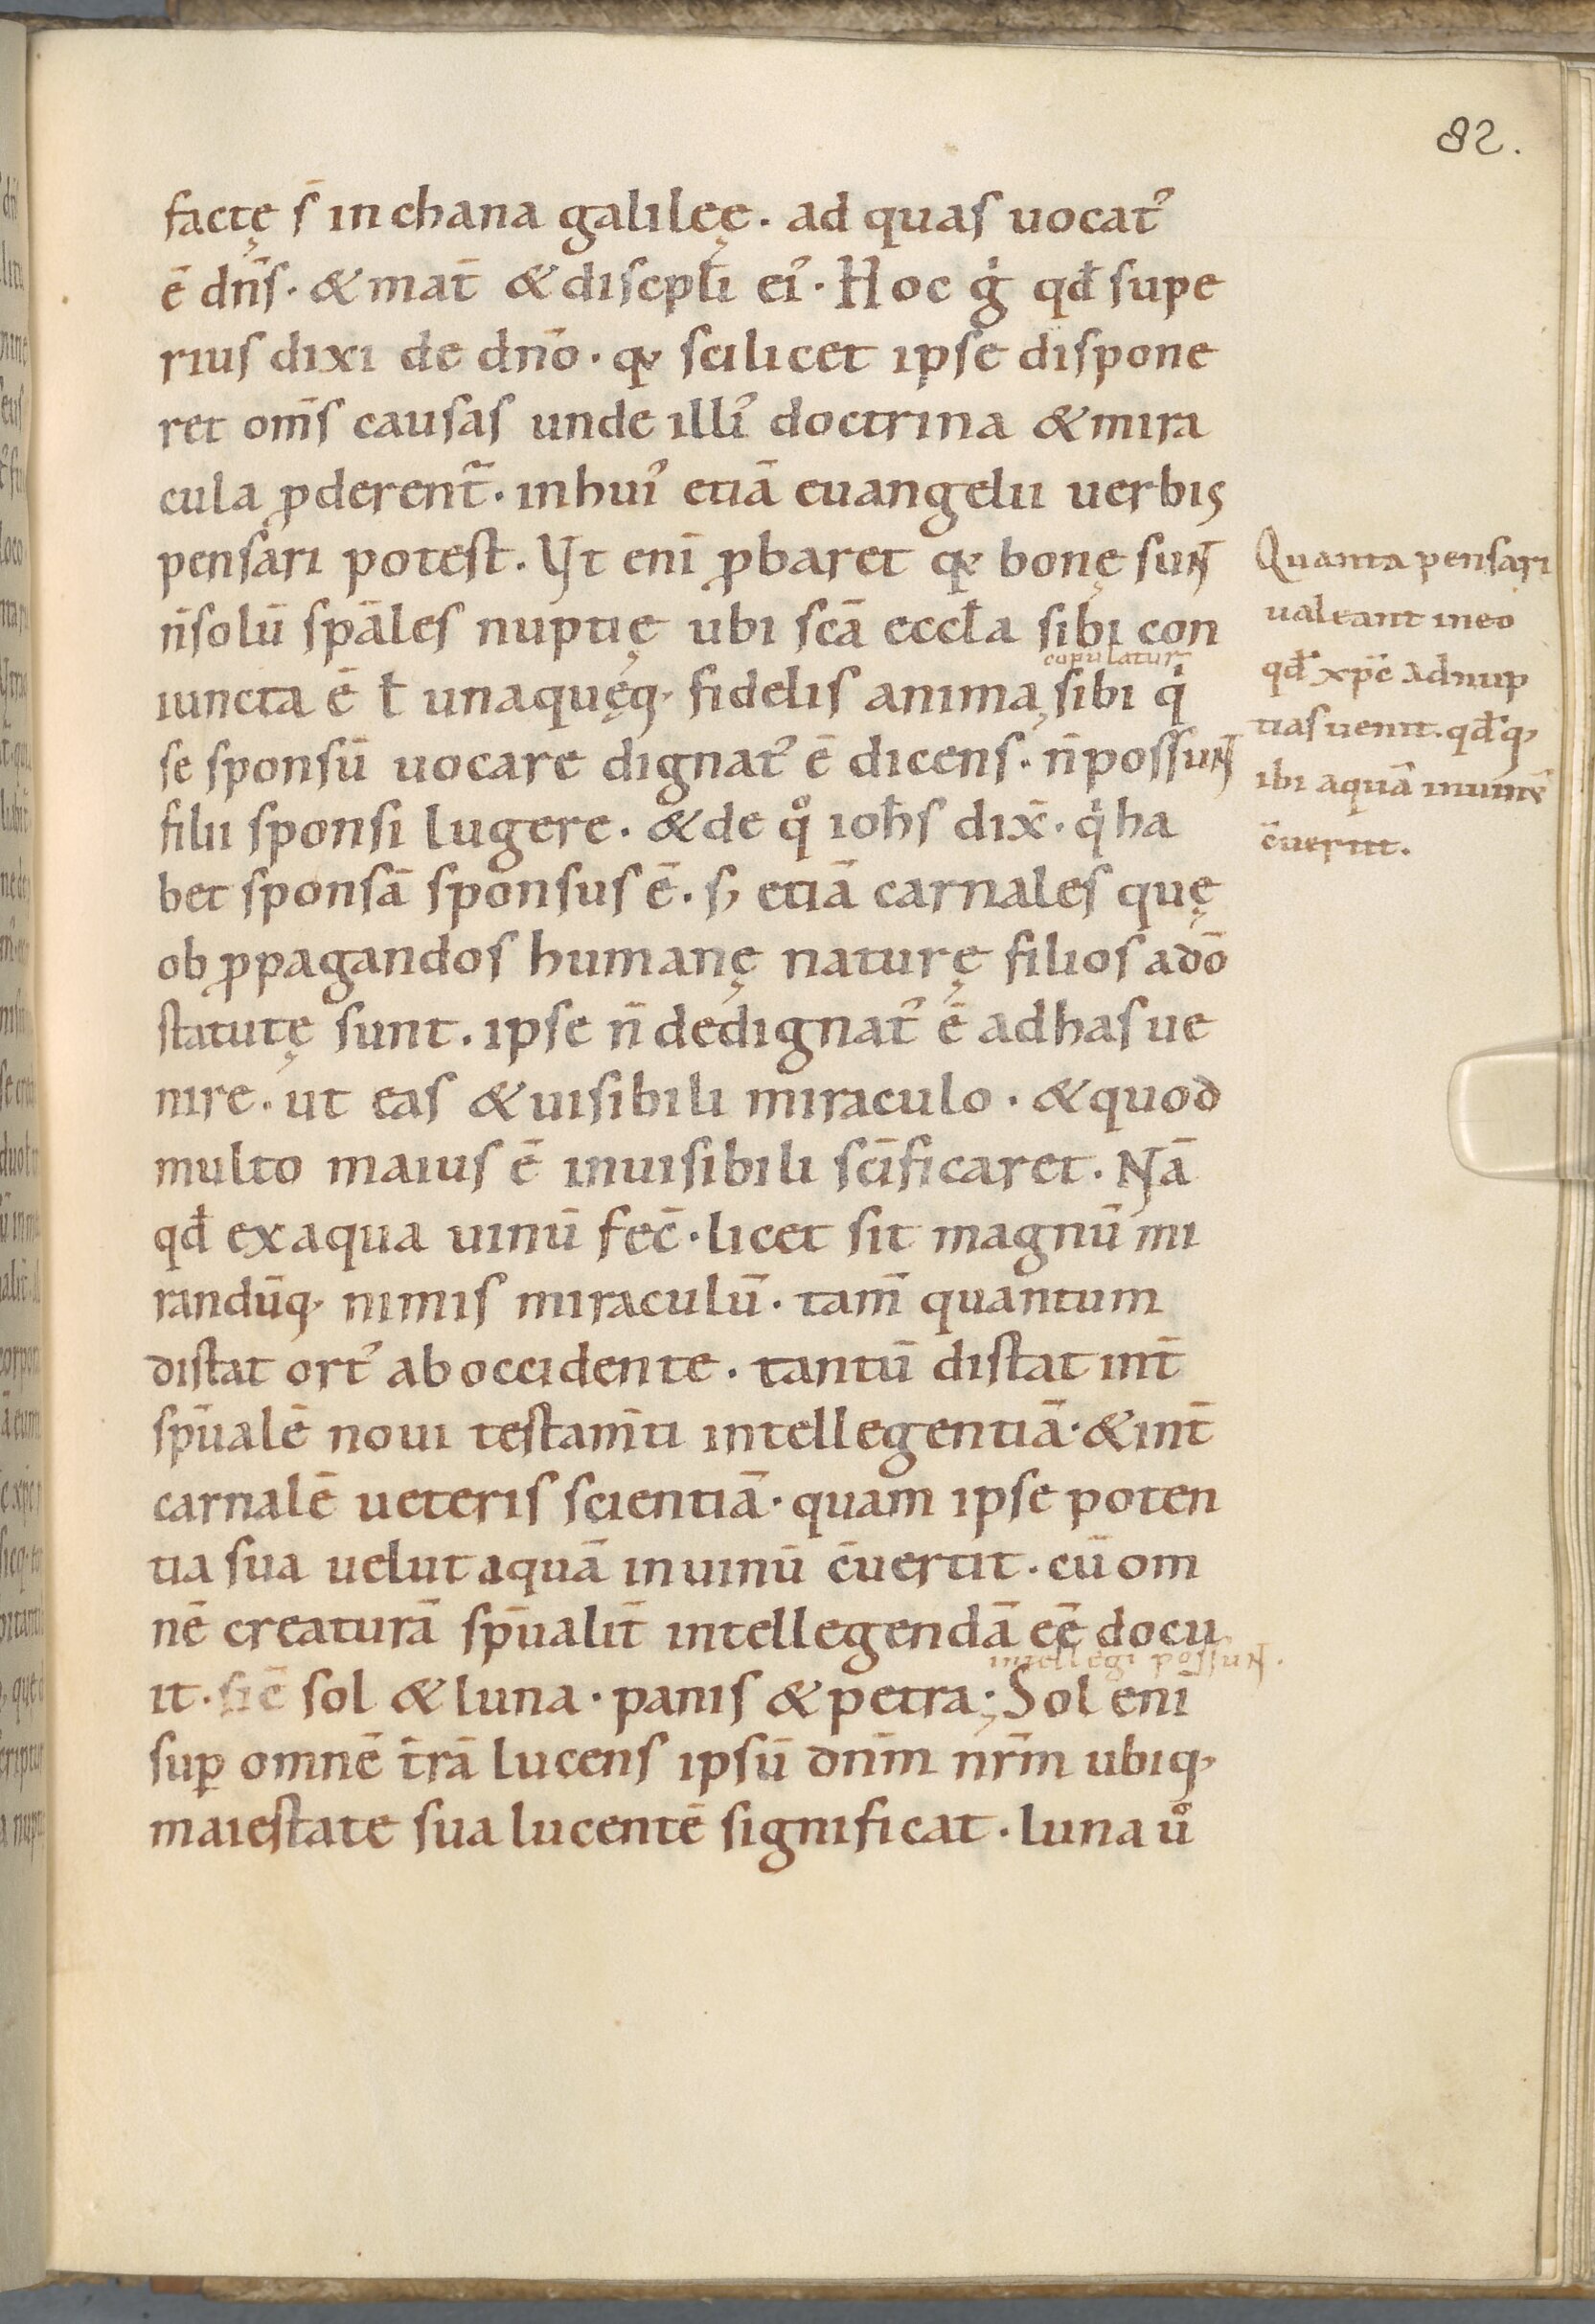 82.
factę s̄ in chana galileę. ad quas uocat᾿
ē dn̄s. & mat̄ & discpłi ei᾿. Hoc g̍ qđ supe
rius dixi de dn̄o. qꝛ scilicet ipse dispone
ret om̄s causas unde illi᾿ doctrina & mira
cula ꝓderent̃. in hui᾿ etiā euangelii uerbis
pensari potest. Ut eni̅ ꝓbaret qꝛ bonę sunt
n̄ solū sp̄ales nuptię ubi sc̄a eccła sibi con
copulatur
iuncta ē ł unaquęq; fidelis anima, sibi q̍
se sponsū uocare dignat᾿ ē dicens. n̄ possunt
filii sponsi lugere. & de q° ioh̄s dix̄. q̍ ha
bet sponsā sponsus ē. s; etiā carnales quę
ob ꝓpagandos humanę naturę filios a dō
statutę sunt. ipse n̄ dedignat᾿ ē ad has ue
nire. ut eas & uisibili miraculo. & quod
multo maius ē inuisibili sc̄ificaret. Nā
qđ ex aqua uinū fec̄. licet sit magnū mi
randūq; nimis miraculū. tam̄ quantum
distat ort᾿ ab occidente. tantū distat int̄
sp̄ualē noui testam̄ti intellegentiā. & int̄
carnalē ueteris scientiā. quam ipse poten
tia sua uelut aquā in uinū c̄uertit. cū om
nē creaturā sp̄ualit̄ intellegendā eē docu
intellegi possunt.
it. sic̄ sol & luna. panis & petra; Sol eni̅
suꝑ omnē t̄rā lucens ipsū dn̄m nr̄m ubiq;
maiestate sua lucentē significat. luna u°
Quanta pensari
ualeant in eo
qđ xp̄c ad nup
tias uenit. qđq;
ibi aquā in uinū
c̄uertit.